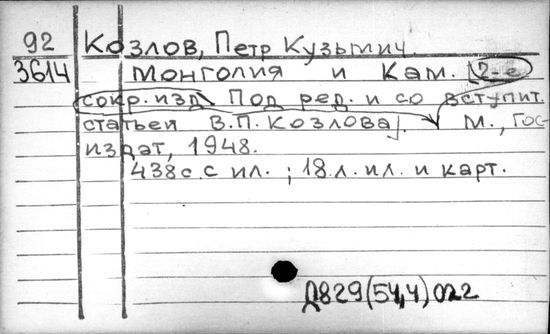 92 Козлов, Петр Кузьмич.
3614 Монголия и Кам. 2-е
сокр. изд. Под ред. и со вступит.
статьей В.П. Козлова]. М., Гос-
издат, 1948.
438 с. с ил. ; 18 л. ил. и карт.
Д829(54,4)022